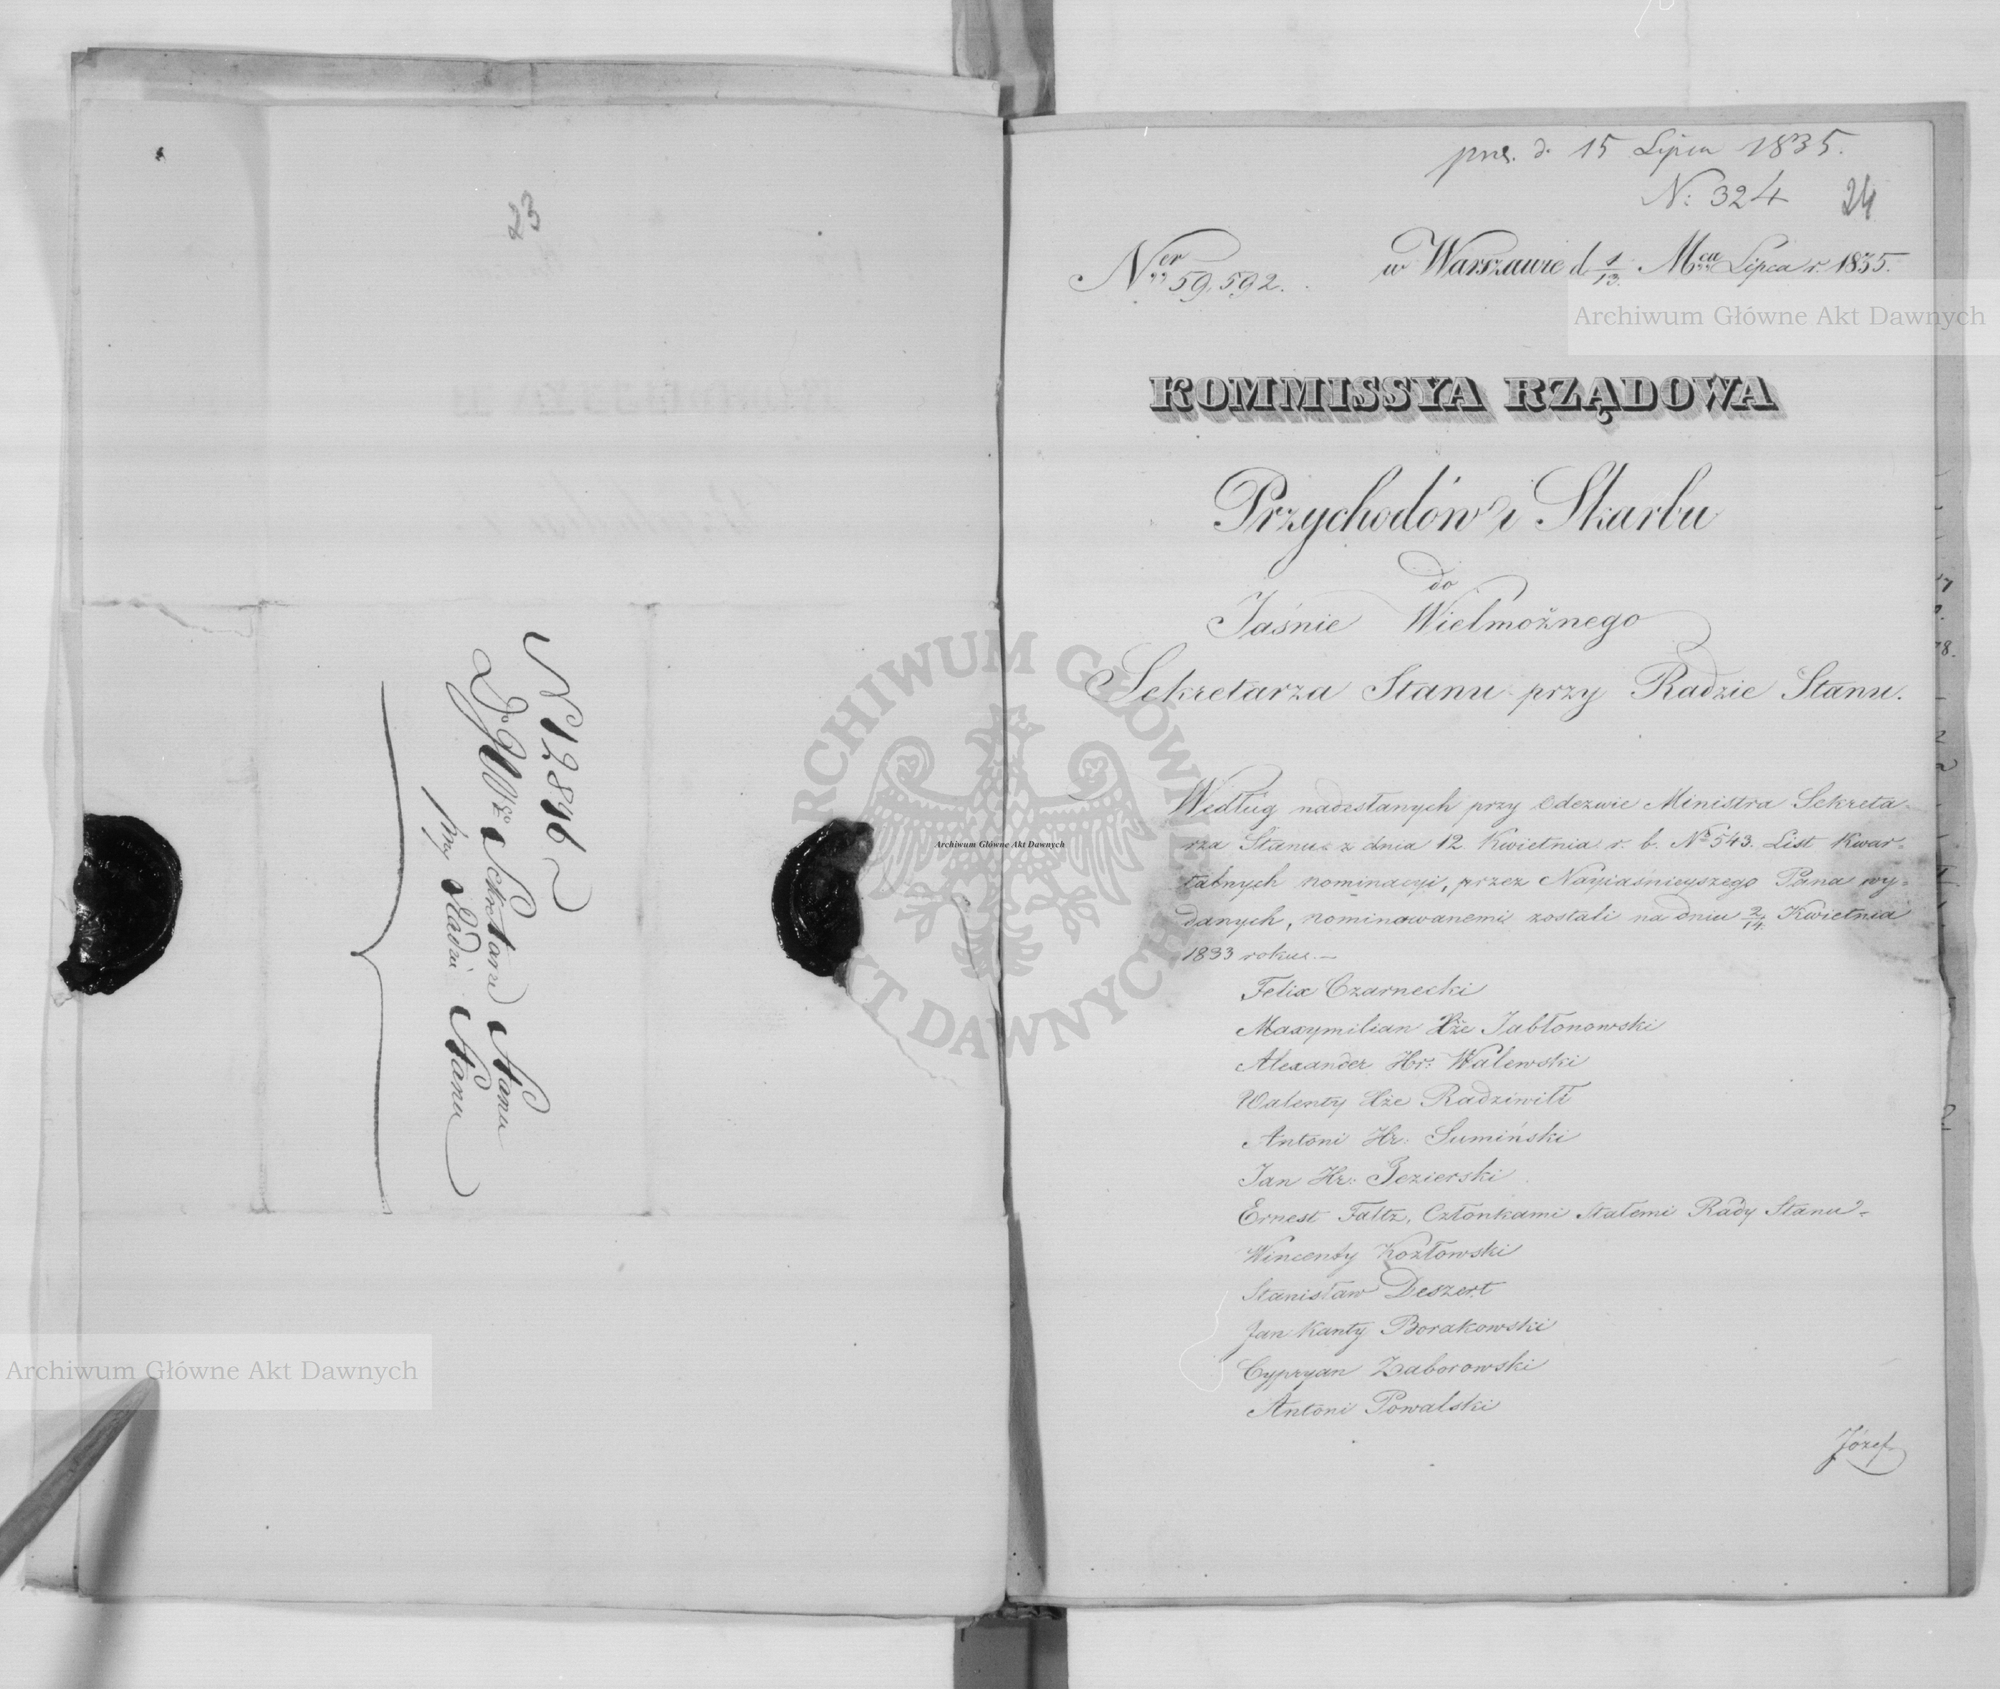 23
N 12846
Do JWgo Sekretarza Stanu
przy Radzie Stanu
pres. d. 15 Lipca 1835.
N: 324
24
Ner 59,592.
w Warszawie d. 1/13. Mca Lipca r. 1835.
KOMMISSYA RZĄDOWA
Przychodów i Skarbu
do
Jaśnie Wielmożnego
Sekretarza Stanu przy Radzie Stanu.
Według nadesłanych przy Odezwie Ministra Sekreta-
rza Stanu z dnia 12 Kwietnia r. b. No 543. List Kwar-
talnych nominacyi, przez Nayiaśnieyszego Pana wy-
danych, nominowanemi zostali na dniu 2/14. Kwietnia
1833 roku. —
Felix Czarnecki
Maxymilian Xże Jabłonowski
Alexander Hr: Walewski
Walenty Xże Radziwiłł
Antoni Hr: Sumiński
Jan Hr: Jezierski
Ernest Faltz, Członkami Stałemi Rady Stanu
Wincenty Kozłowski
Stanisław Deszert
Jan Kanty Borakowski
Cypryan Zaborowski
Antoni Powalski
Józef
Archiwum Główne Akt Dawnych
Archiwum Główne Akt Dawnych
Archiwum Główne Akt Dawnych
ARCHIWUM GŁÓWNE AKT DAWNYCH